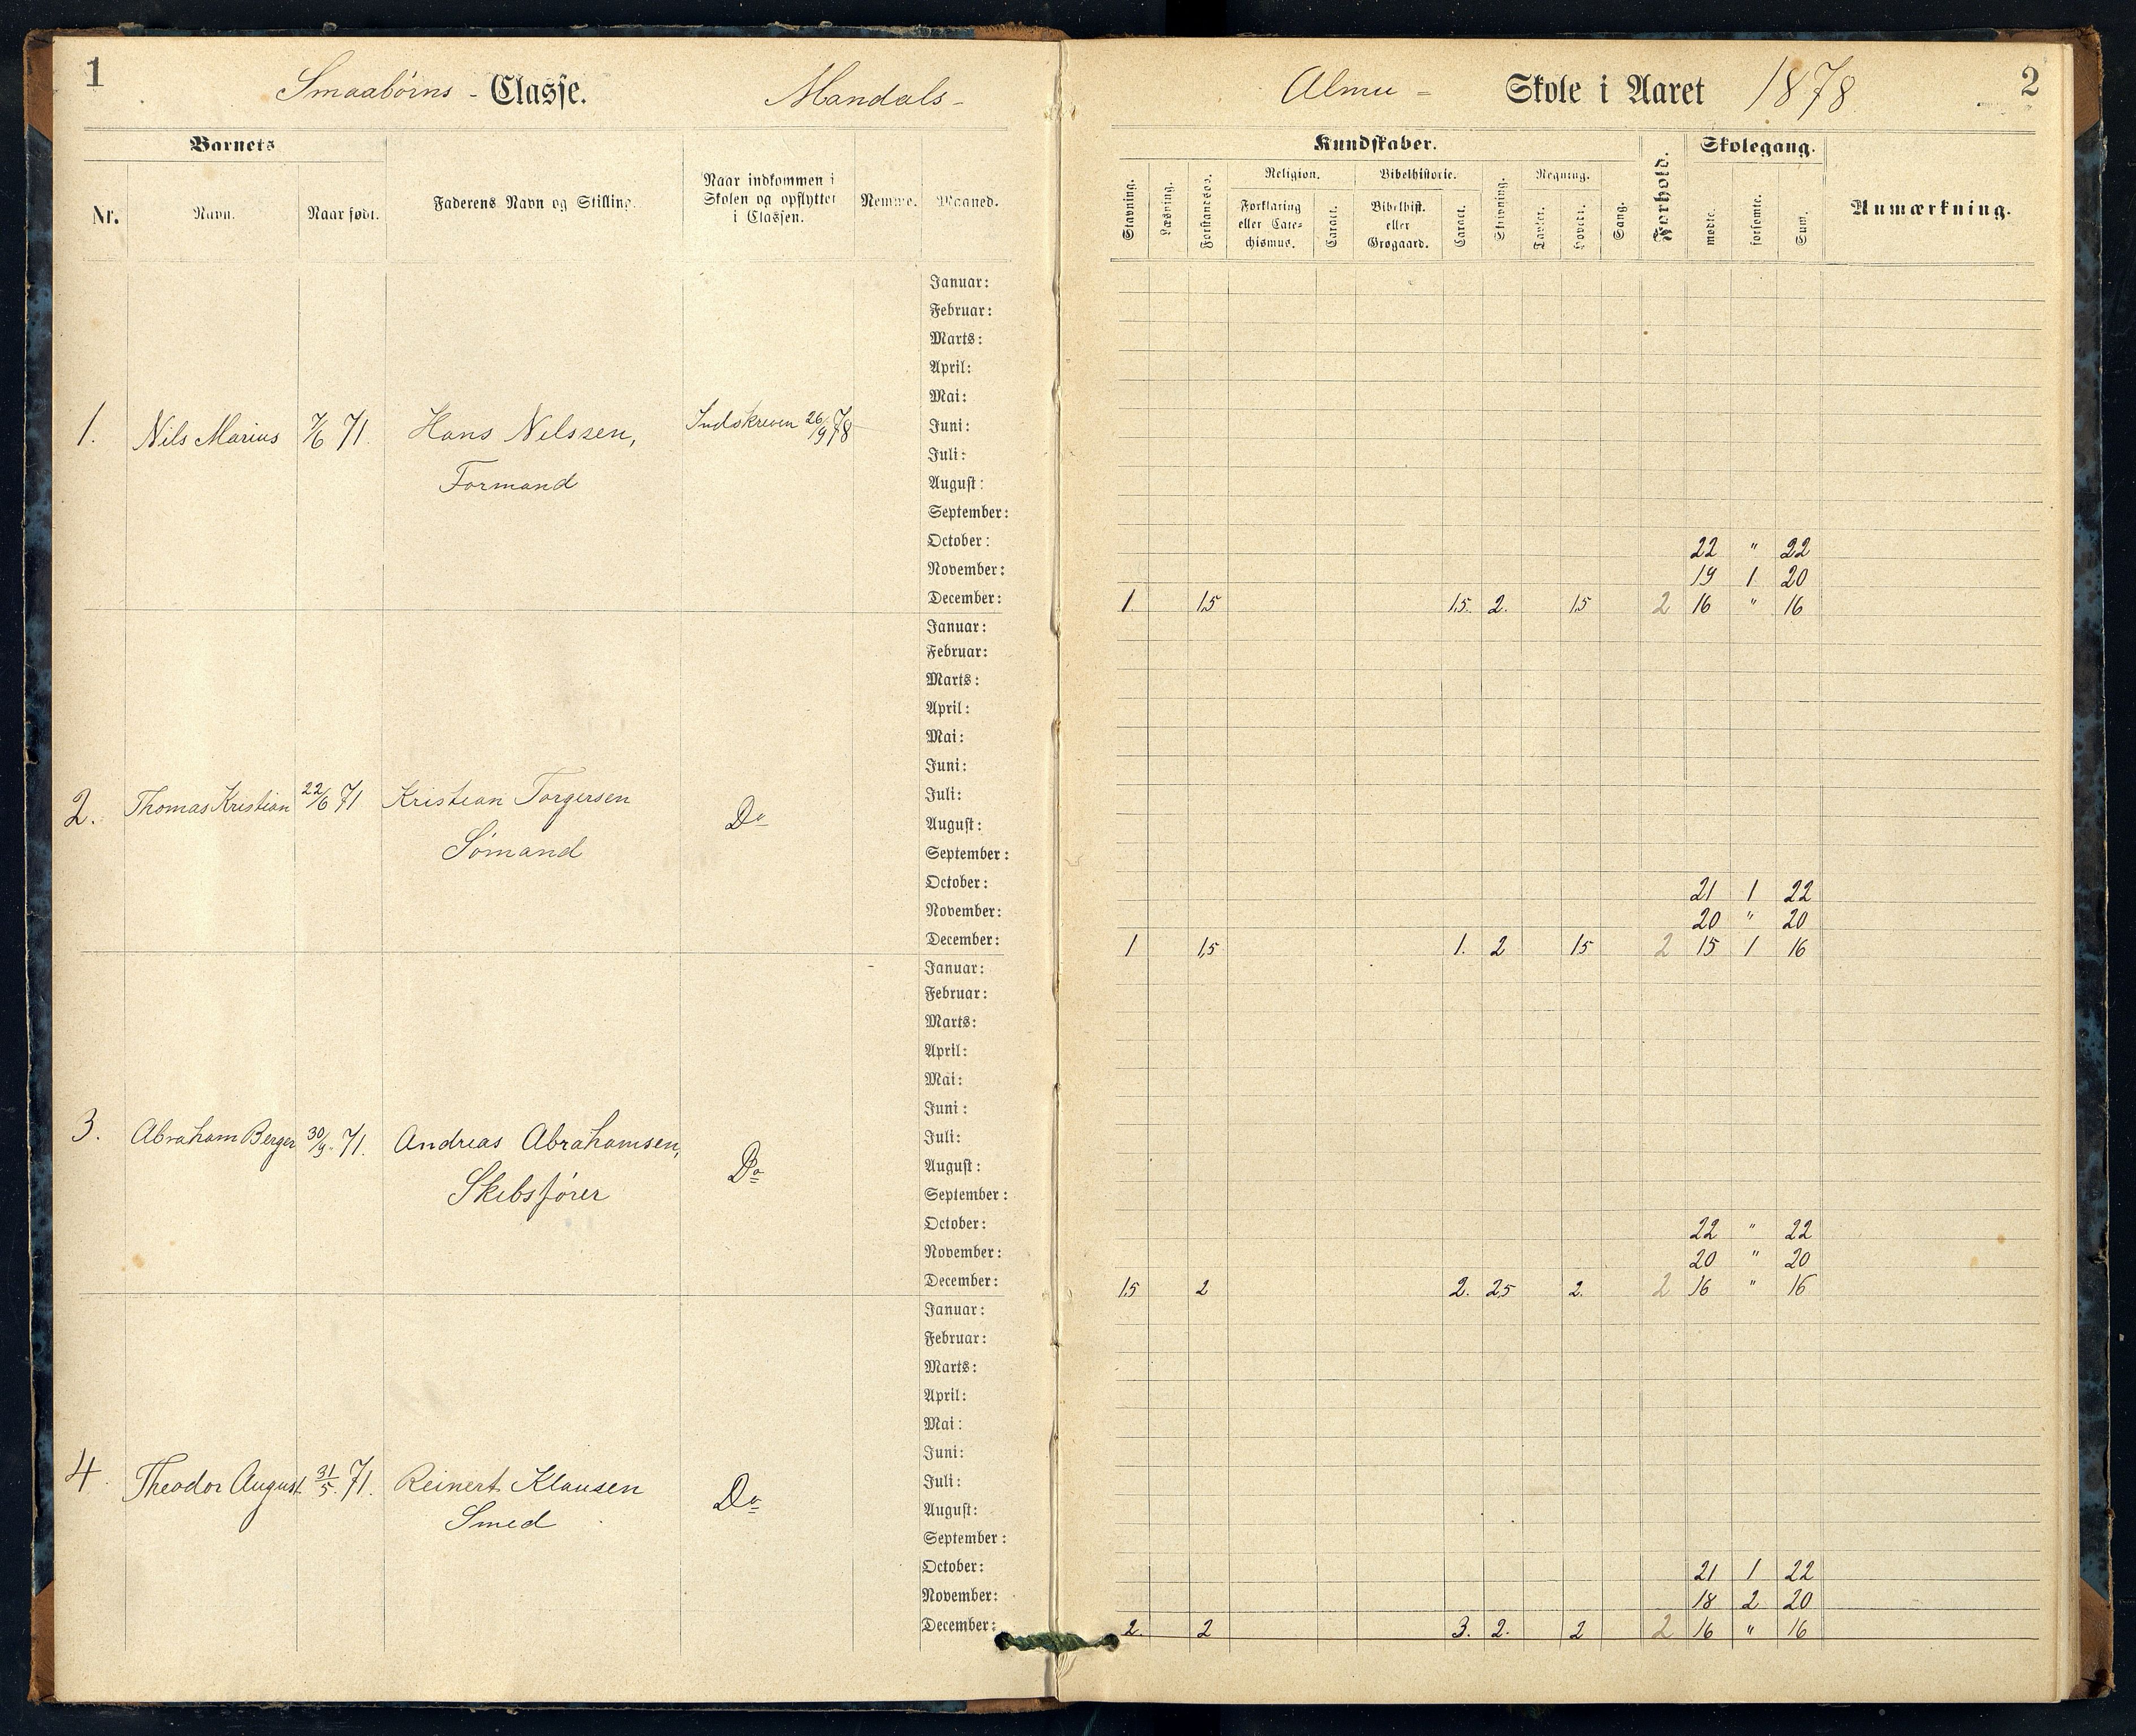 1
Smaabörns - Classe. Mandals -
Barnets
Nr. Navn. Naar født. Faderens Navn og Stilling. Naar indkommen i Skolen og opflyttet i Classen. Nemme. Maaned.
Januar:
Februar:
Marts:
April:
Mai:
Juni:
Juli:
August:
September:
October:
November:
December:
1. Nils Marius 7/6 71. Hans Nilssen, Indskreven 26/9 78
Formand
Januar:
Februar:
Marts:
April:
Mai:
Juni:
Juli:
August:
September:
October:
November:
December:
2. Thomas Kristian 22/6 71 Kristian Torgersen Do
Sömand
Januar:
Februar:
Marts:
April:
Mai:
Juni:
Juli:
August:
September:
October:
November:
December:
3. Abraham Berger 30/9. 71. Andreas Abrahamsen, Do
Skibsförer
Januar:
Februar:
Marts:
April:
Mai:
Juni:
Juli:
August:
September:
October:
November:
December:
4. Theodor August 31/5. 71. Reinert Klausen Do
Smed
Almu - Skole i Aaret 1878. 2
Kundskaber. Forhold. Skolegang. Anmærkning.
Stavning. Læsning. Forstandsøv. Religion. Bibelhistorie. Skrivning. Regning. Sang. mødte. forsømte. Sum.
Forklaring eller Cate-chismus. Caract. Bibelhist. eller Grøgaard. Caract. Tavler. Hoved.
22 " 22
19 1 20
1. 1,5 1,5. 2. 1,5 2 16 " 16
21 1 22
20 " 20
1 1,5 1. 2 1,5 2 15 1 16
22 " 22
20 " 20
1,5 2 2. 2,5 2. 2 16 " 16
21 1 22
18 2 20
2. 2 3. 2. 2 2 16 " 16